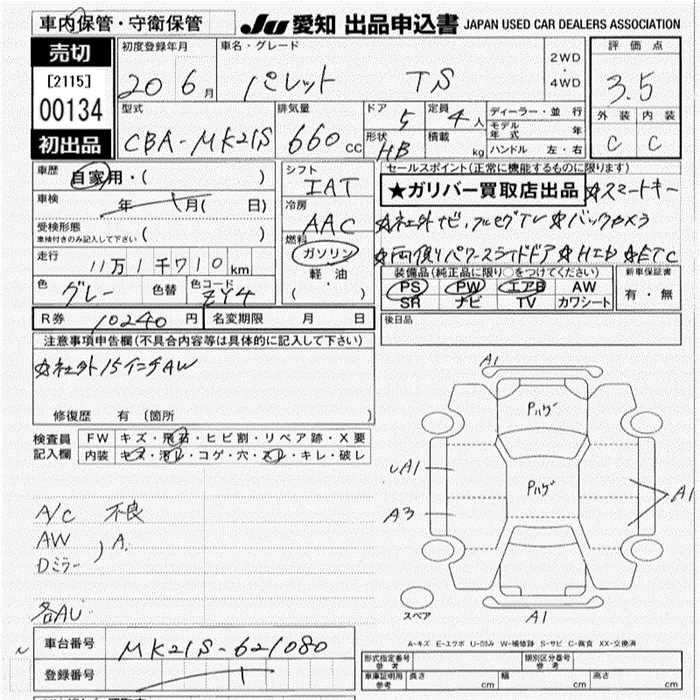 車内保管・守衛保管
JU 愛知 出品申込書 JAPAN USED CAR DEALERS ASSOCIATION
売切
[2115]
00134
初出品
初度登録年月
20 6月
車名・グレード
パレット TS
2WD
・
4WD
評価点
3.5
外装 内装
C C
型式
CBA-MK21S
排気量
660cc
ドア 5
形状 HB
定員 4人
積載 kg
ディーラー・並行
モデル年式 年
ハンドル 左・右
車歴 自家用・( )
車検 年 月( 日)
受検形態
車検付きのみ記入して下さい ( )
走行 11万1千710km
色 グレー 色替 色コード ZY4
シフト
IAT
冷房
AAC
燃料
ガソリン
軽・油
( )
セールスポイント(正常に機能するものに限ります)
★ガリバー買取店出品 ☆スマートキー
☆社外ナビ,フルセグTV ☆バックカメラ
☆両側パワースライドドア ☆HID ☆ETC
装備品(純正品に限り○をつけてください)
PS PW エアB AW
SR ナビ TV カワシート
新車保証書
有・無
R券 10240円 名変期限 月 日
後日品
注意事項申告欄(不具合内容等は具体的に記入して下さい)
☆社外15インチAW
修復歴 有 (箇所 )
検査員記入欄
FW キズ・飛石・ヒビ割・リペア跡・X要
内装 キズ・汚レ・コゲ・穴・スレ・キレ・破レ
A1
Pハゲ
UA1
Pハゲ
A3
A1
A/C 不良
AW
Dミラー ) A.
各AU
スペア
A1
A-キズ E-エクボ U-凹み W-補修跡 S-サビ C-腐食 XX-交換済
車台番号 MK21S-621080
登録番号
型式指定番号 参考
類別区分番号 参考
車庫証明用 参考 長さ 幅 高さ